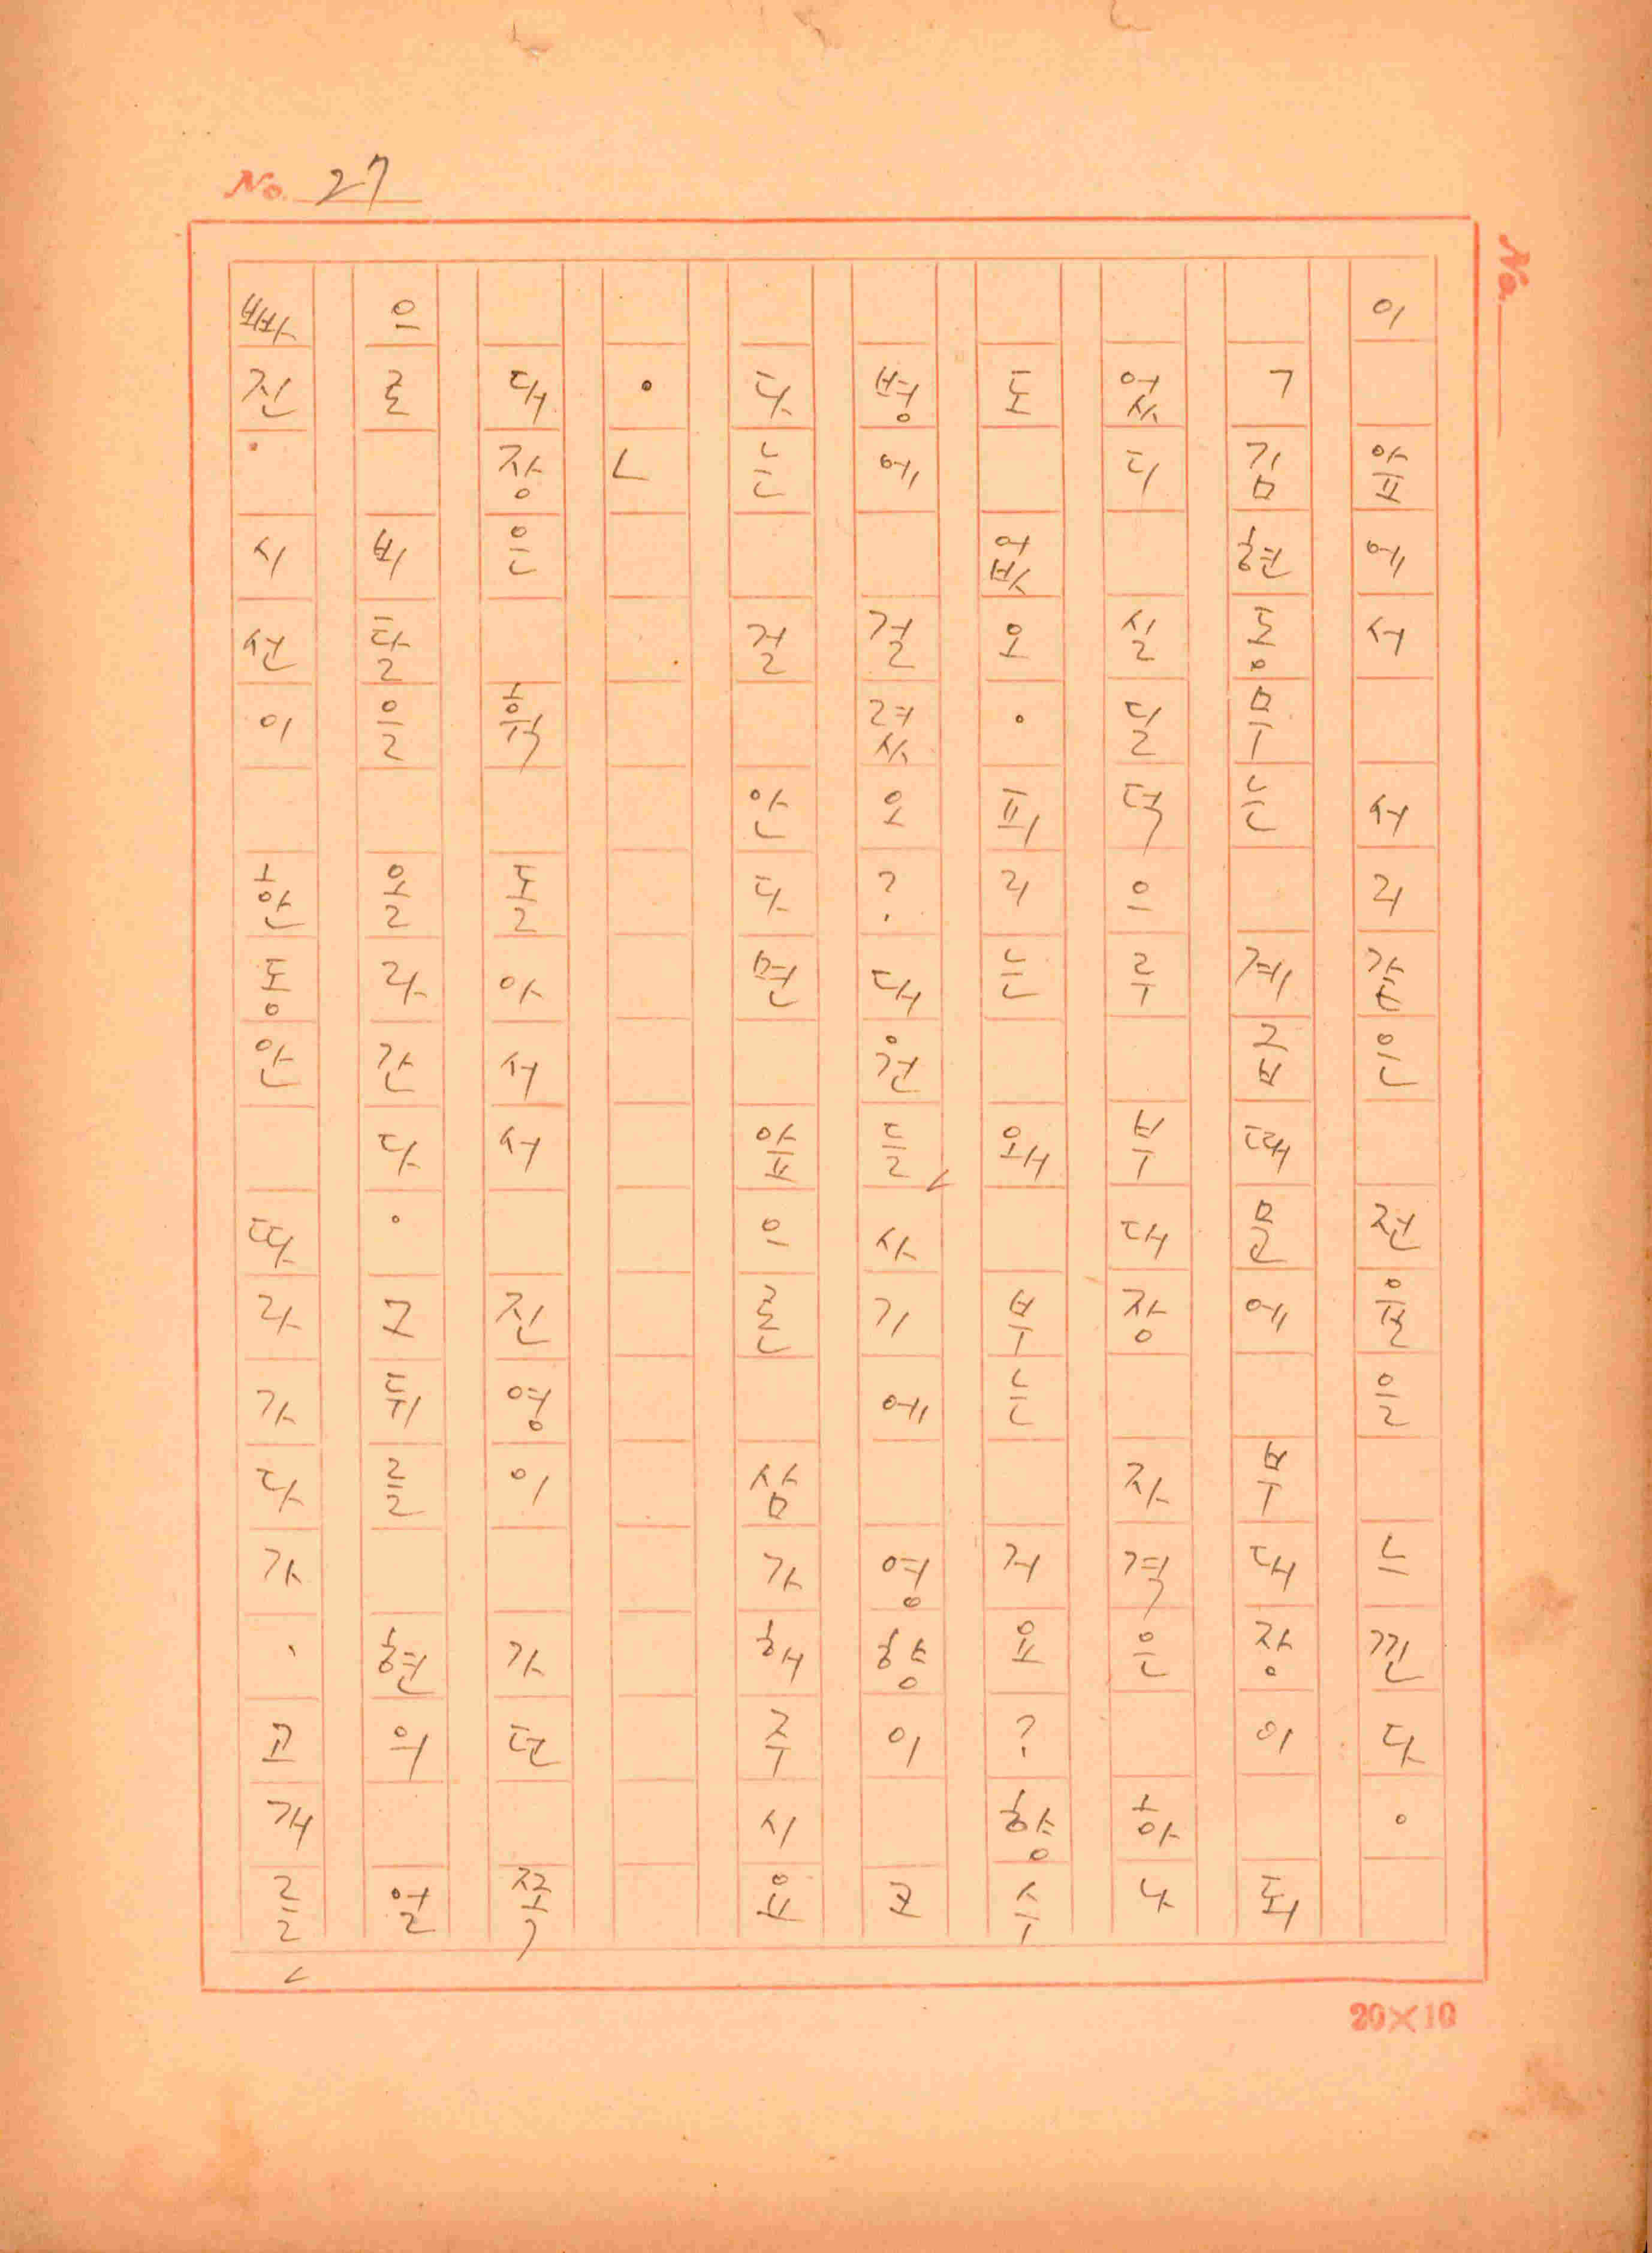 No. 27
No.
이 앞에서 서리같은 전율을 느낀다.
「김현동무는 계급때문에 부대장이 되
었디 실딜덕으루 부대장 자격은 하나
도 없오. 피리는 왜 부는 거요? 향수
병에 걸렸오? 대원들 사기에 영향이 크
다는 걸 안다면 앞으론 삼가해주시요
.」
대장은 홱 돌아서서 진영이 가던 쪽
으로 비탈을 올라간다. 그 뒤를 현의 얼
빠진 시선이 한동안 따라가다가, 고개를
20×10